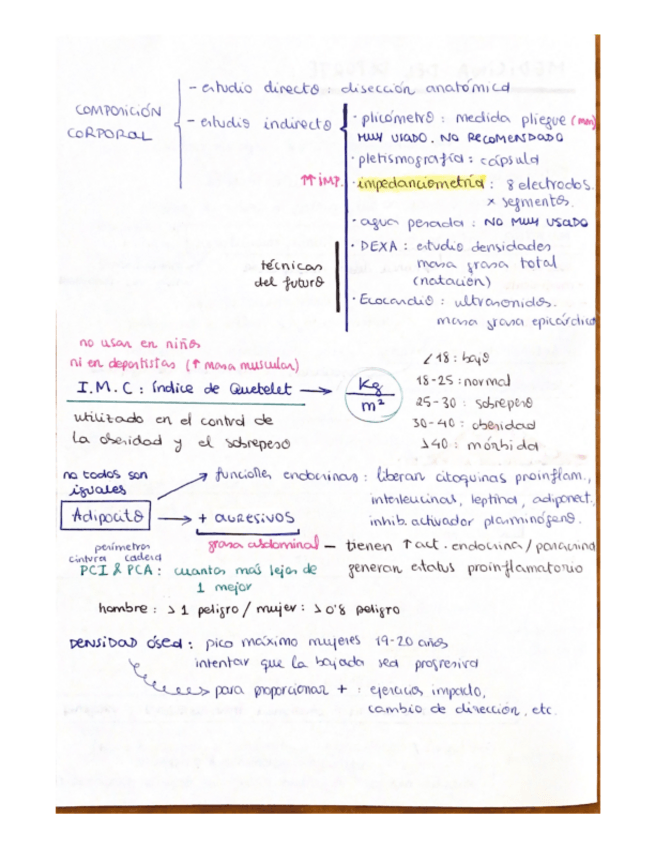 - estudio directo : disección anatómica
COMPOSICIÓN CORPORAL
- estudio indirecto
· plicómetro : medida pliegue (mm)
MUY USADO. NO RECOMENDADO
· pletismografía : cápsula
↑↑ IMP. · impedanciometría : 8 electrodos.
x segmentos.
· agua pesada : NO MUY USADO
técnicas del futuro
· DEXA : estudio densidades
masa grasa total
(natación)
· Ecocardio : ultrasonidos.
masa grasa epicárdica
no usar en niños
ni en deportistas (↑ masa muscular)
I.M.C : índice de Quetelet → Kg/m²
utilizado en el control de
la obesidad y el sobrepeso
<18 : bajo
18-25 : normal
25-30 : sobrepeso
30-40 : obesidad
>40 : mórbida
no todos son
iguales
Adipocito
→ funciones endocrinas : liberan citoquinas proinflam.,
interleucinas, leptina, adiponect.,
inhib. activador plasminógeno.
→ + AGRESIVOS
grasa abdominal – tienen ↑ act. endocrina / paracrina
generan estatus proinflamatorio
perímetros
cintura cadera
PCI & PCA : cuanto más lejos de
1 mejor
hombre : >1 peligro / mujer : >0'8 peligro
DENSIDAD ÓSEA : pico máximo mujeres 19-20 años
intentar que la bajada sea progresiva
→ para proporcionar + : ejercicios impacto,
cambio de dirección, etc.